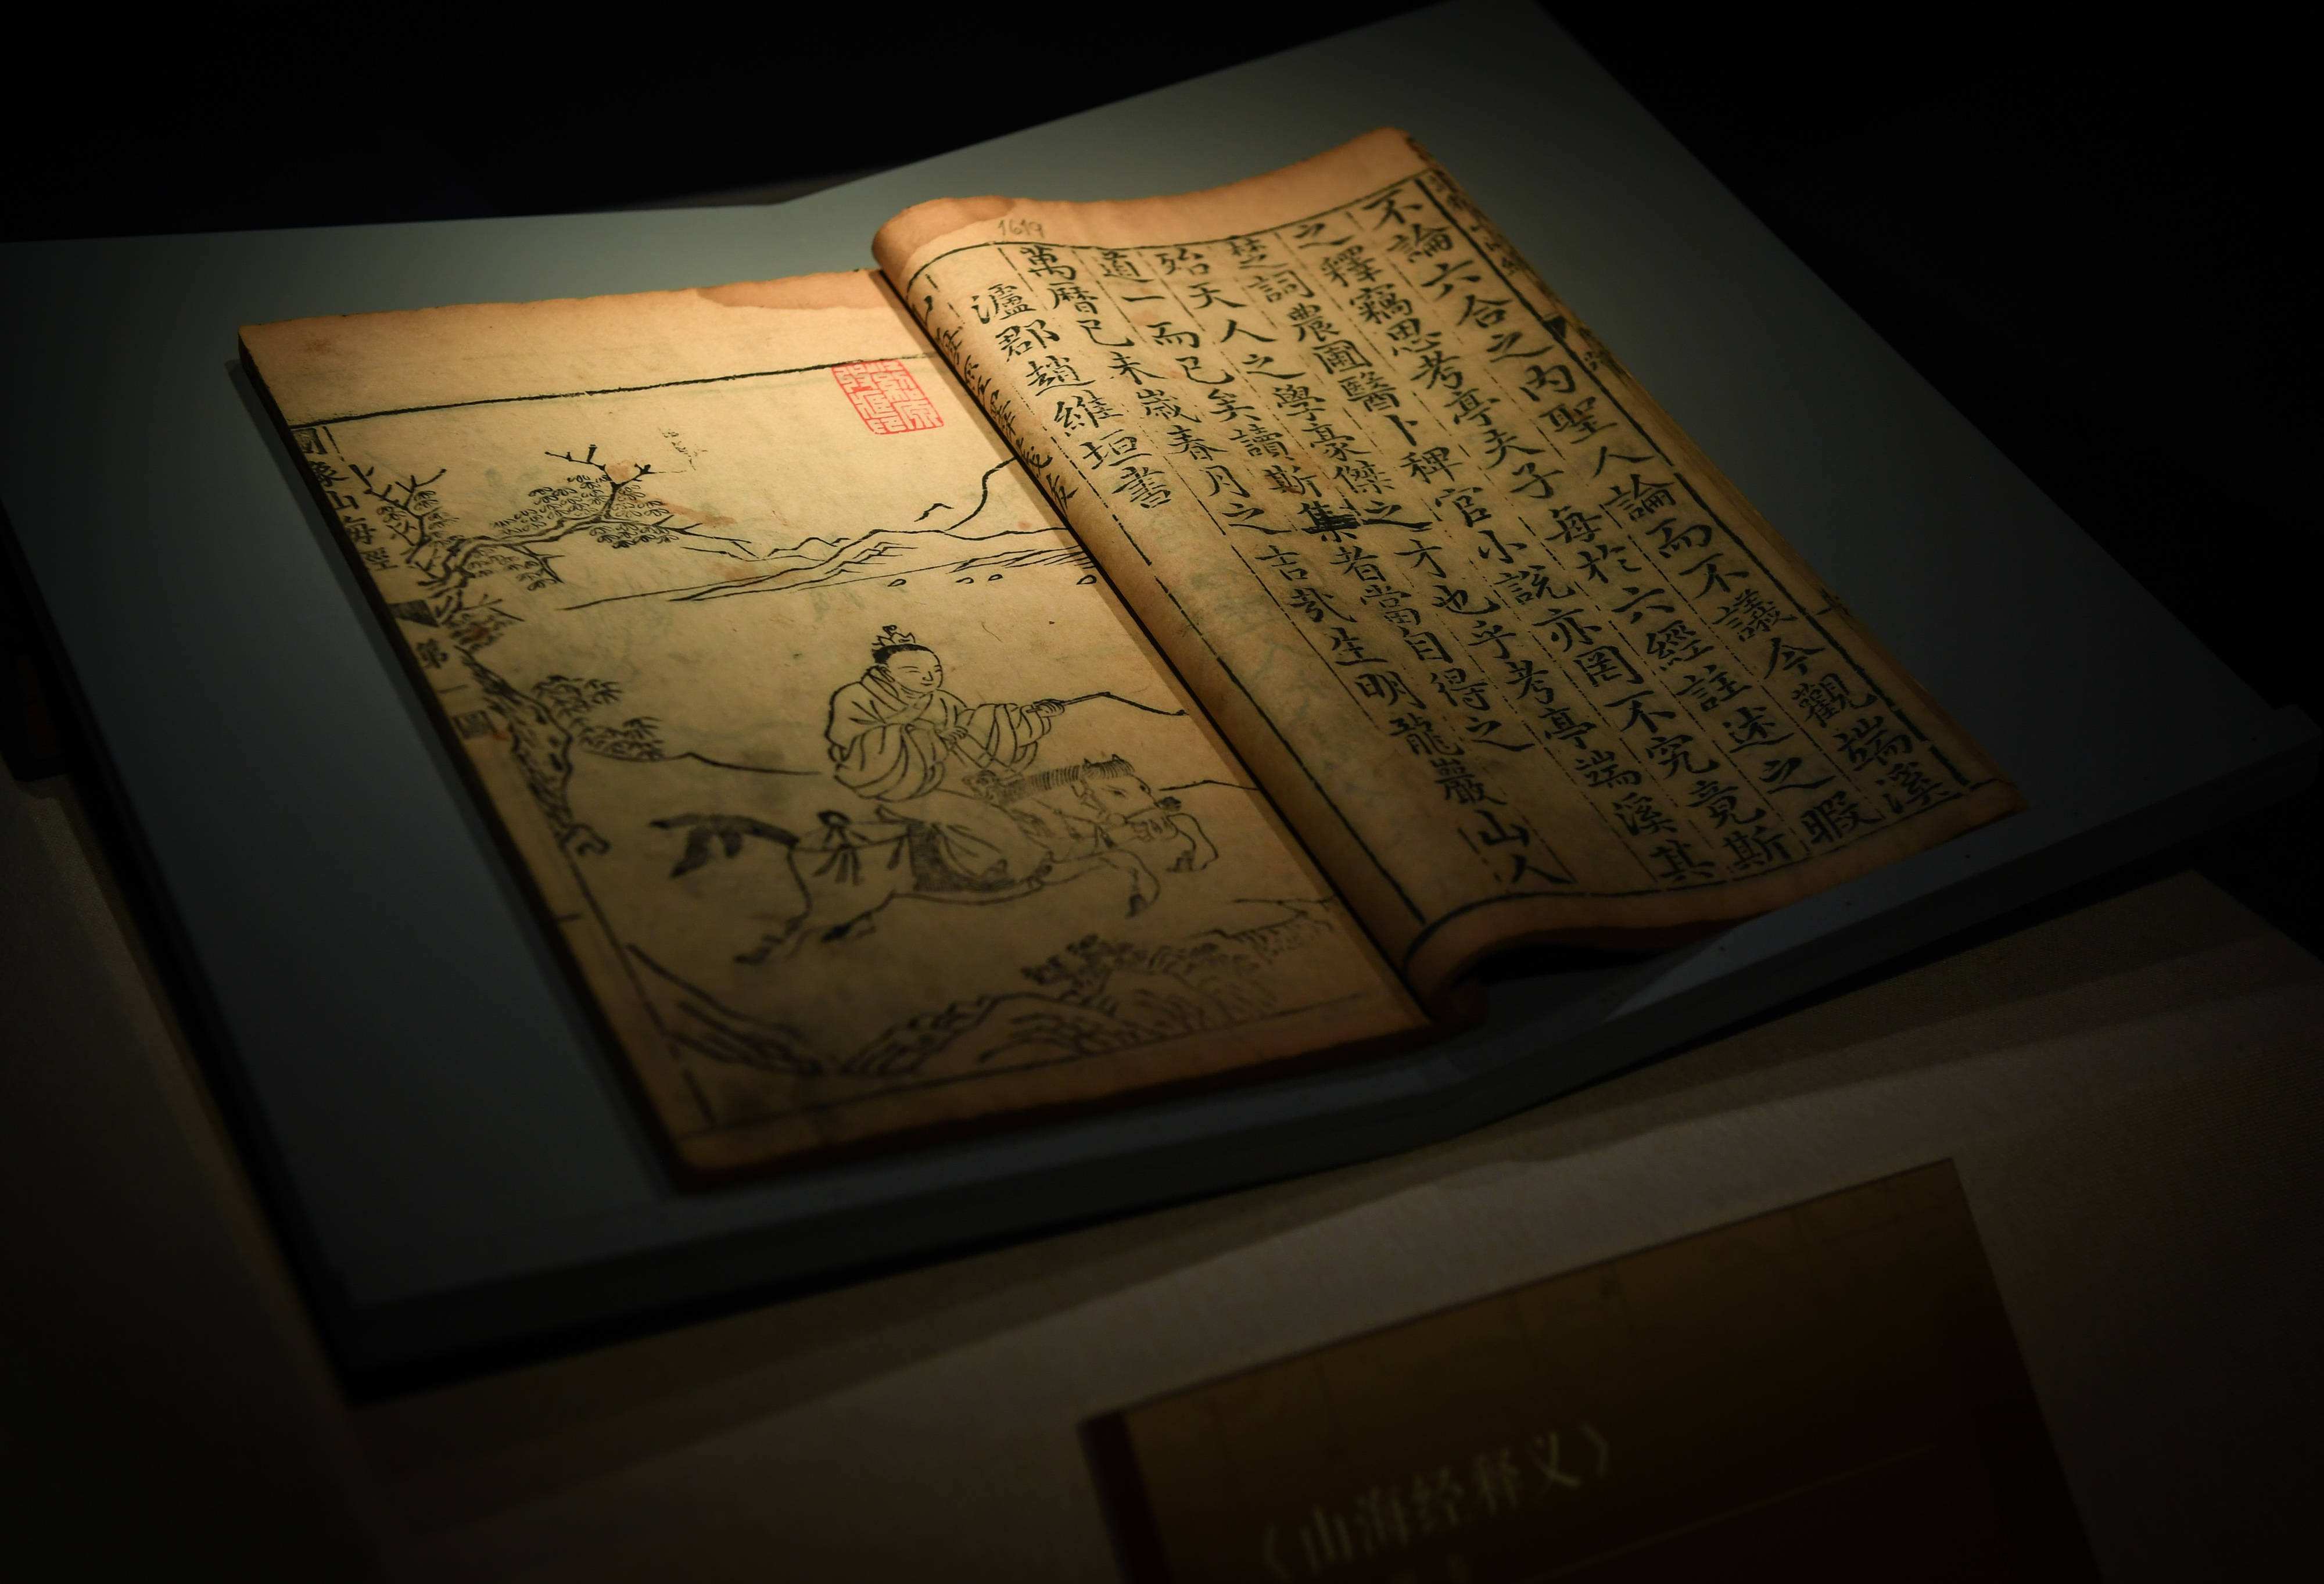 不論六合之内聖人論而不議今觀端溪
之釋竊思考亭夫子每於六經註述之暇
楚詞農圃醫卜稗官小説亦罔不究竟斯
殆天人之學豪傑之才也乎考亭端溪其
道一而已矣讀斯集者當自得之
萬曆已未歲春月之吉哉生明龍巖山人
瀘郡趙維垣書
1619
圖像山海經
第一圖
《山海经释义》